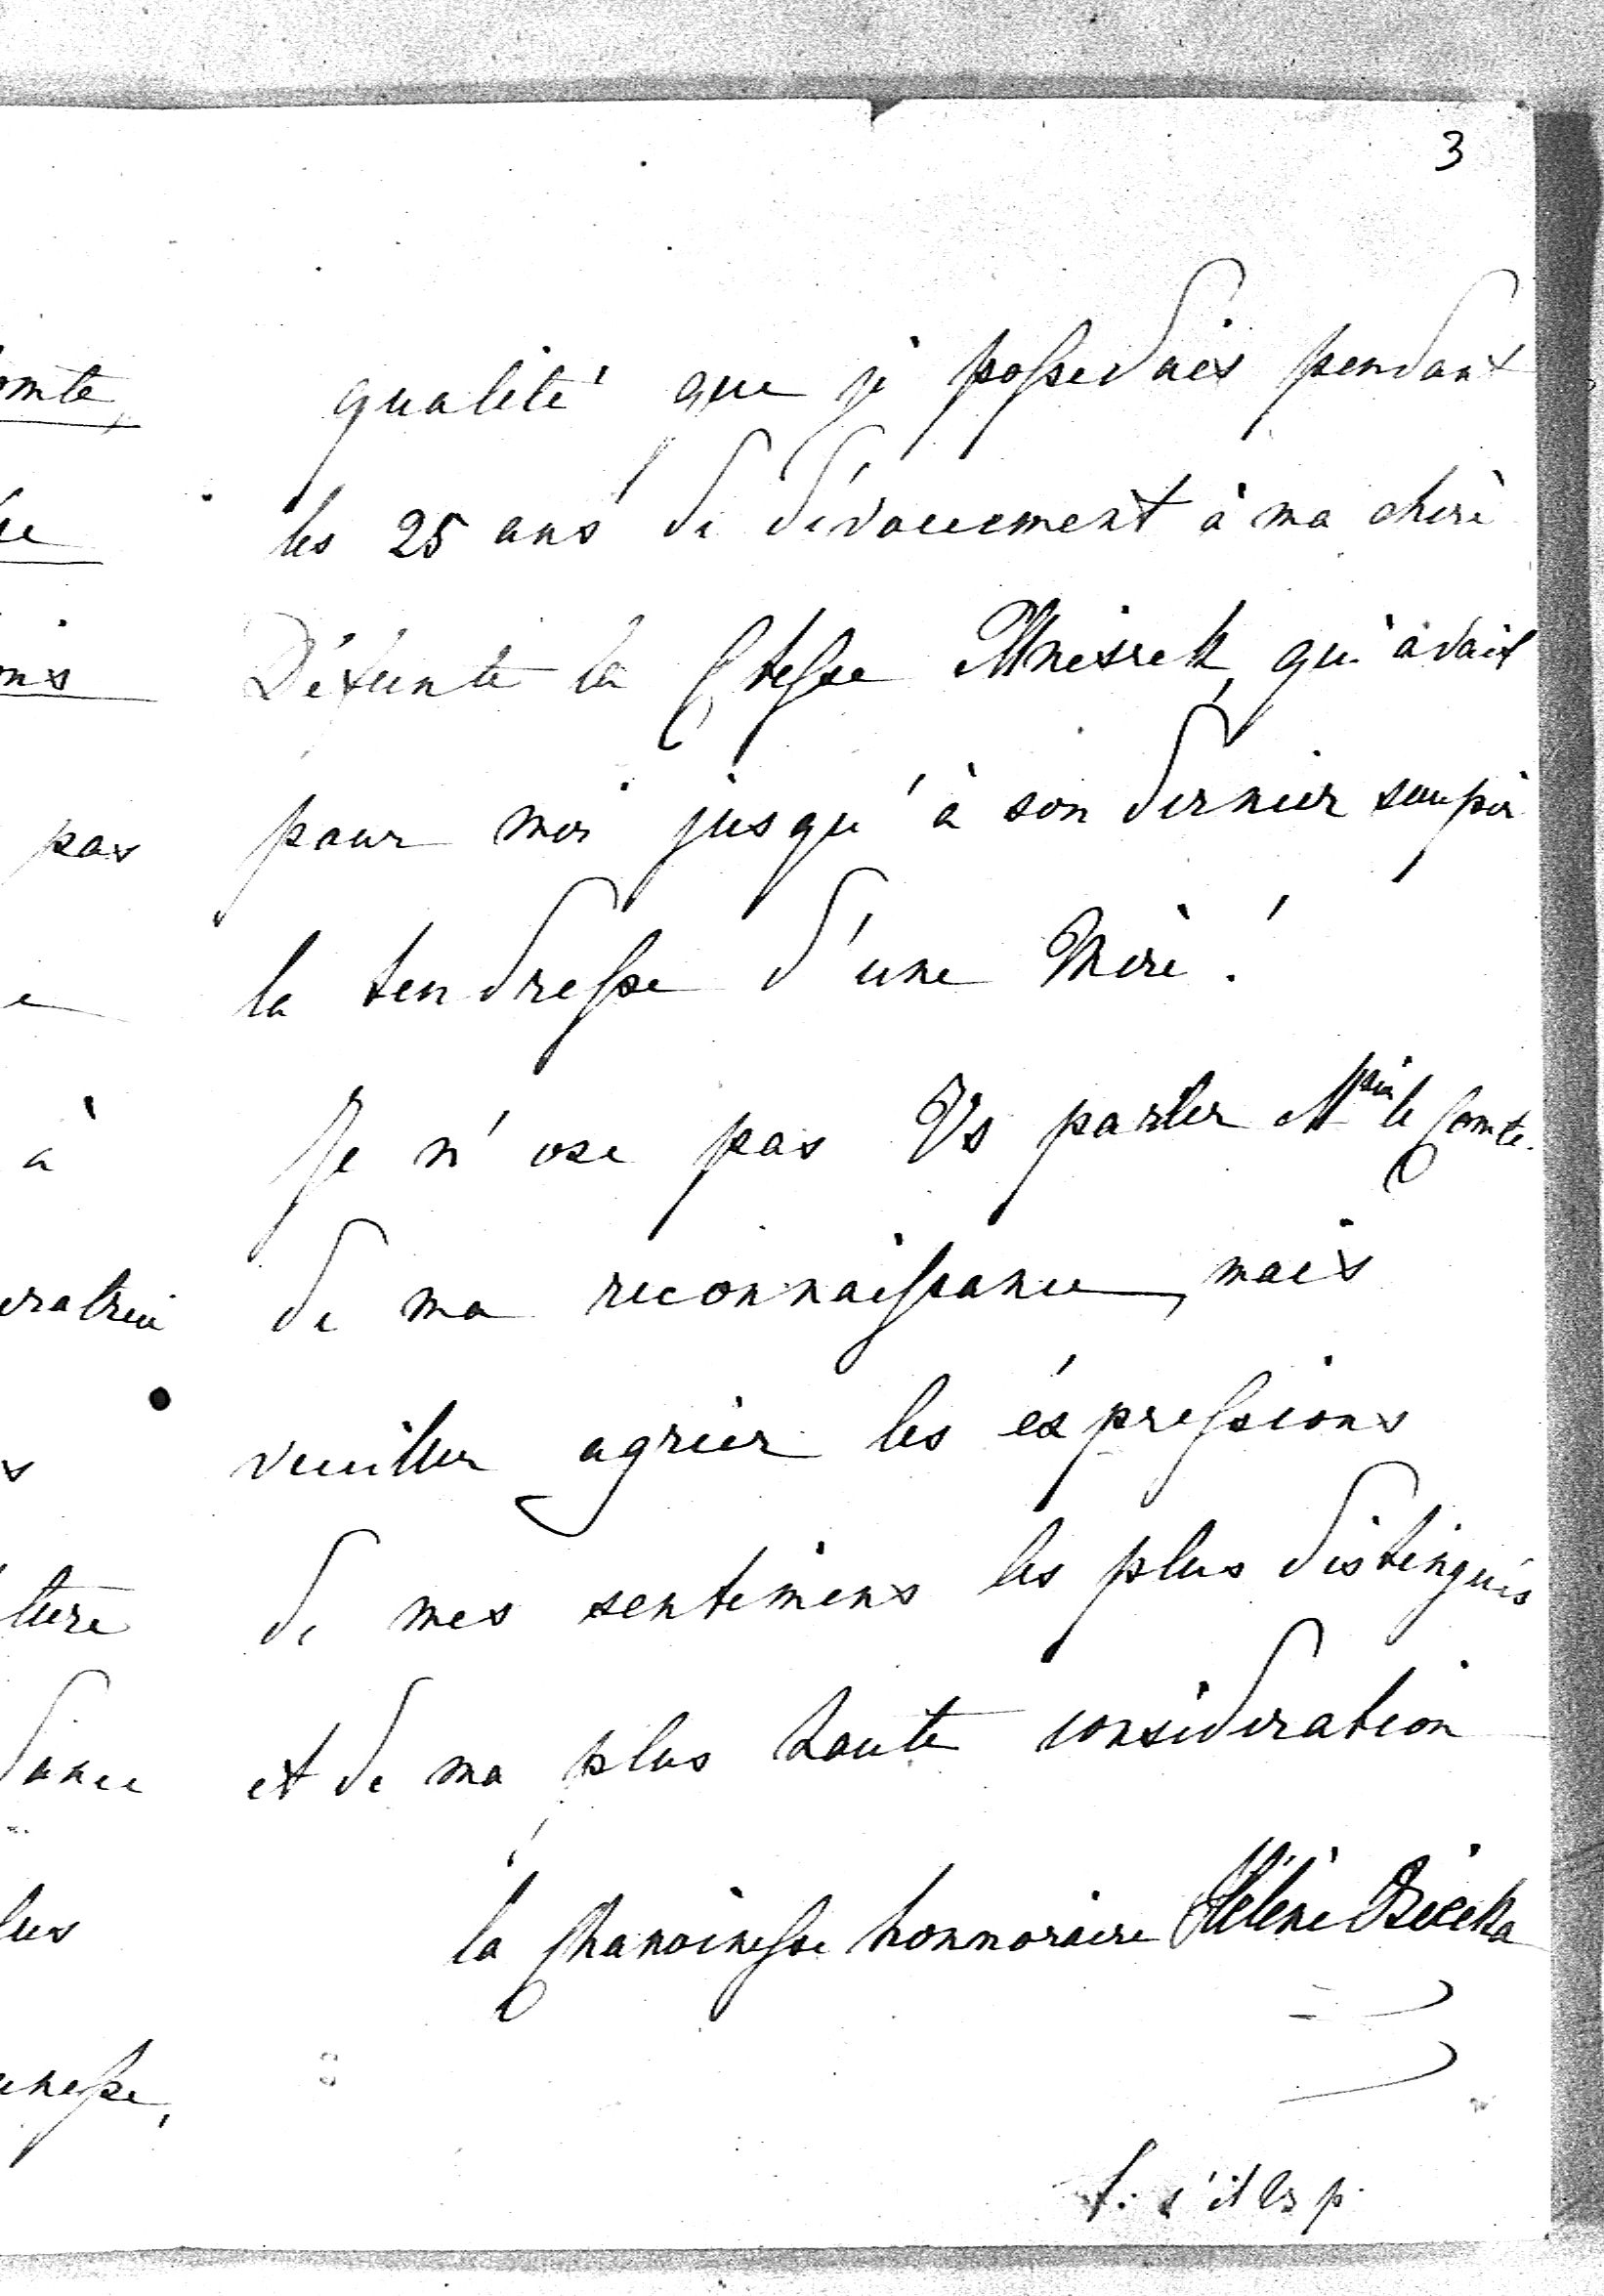 3
qualité que je possedais pendant
les 25 ans de dévouement à ma chere
Défunte la Ctesse Mniszek, qui avait
pour moi jusqu'à son dernier soupir
la tendresse d'une Mère!
Je n'ose pas Vs parler Msieur le Comte.
de ma reconnaissance, mais
veuillez agréer les éxpressions
de mes sentimens les plus distingués
et de ma plus haute consideration
la Chanoinesse honnoraire Hélène
s'il vs p.
omte,
pas
à
ture